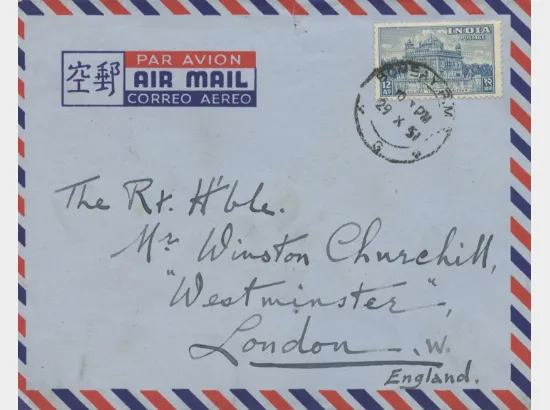 空郵
PAR AVION
AIR MAIL
CORREO AEREO
INDIA
POSTAGE
12 AS
BOMBAY
PM
29 X 51
The Rt. H'ble.
Mr Winston Churchill,
"Westminster",
London . W.
England.